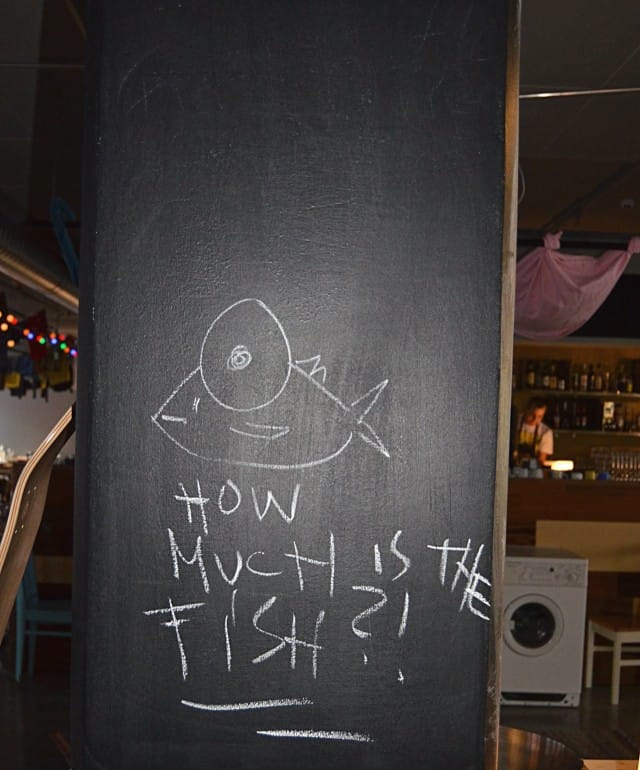 HOW
MUCH IS THE
FISH?!